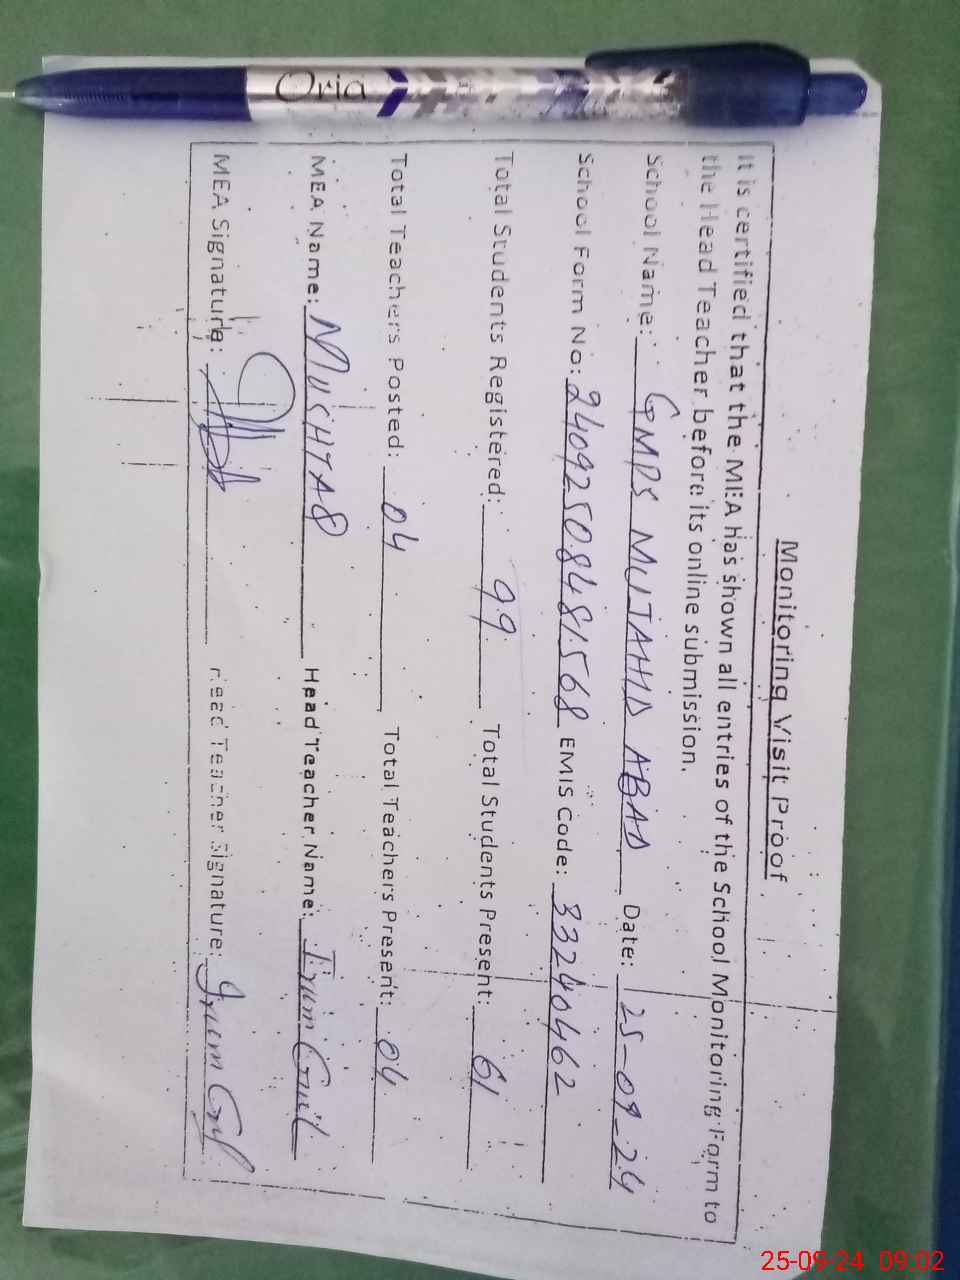 Oria
Monitoring Visit Proof
It is certified that the MEA has shown all entries of the School Monitoring Form to
the Head Teacher before its online submission.
School Name: GMPS MUJAHID ABAD Date: 25-09-24
School Form No: 24092508481568 EMIS Code: 33240462
Total Students Registered: 99 Total Students Present: 61
Total Teachers Posted: 04 Total Teachers Present: 04
MEA Name: MUSHTAQ Head Teacher Name: Irum Gull
MEA Signature: Head Teacher Signature: Irum Gul
25-09-24 09:02